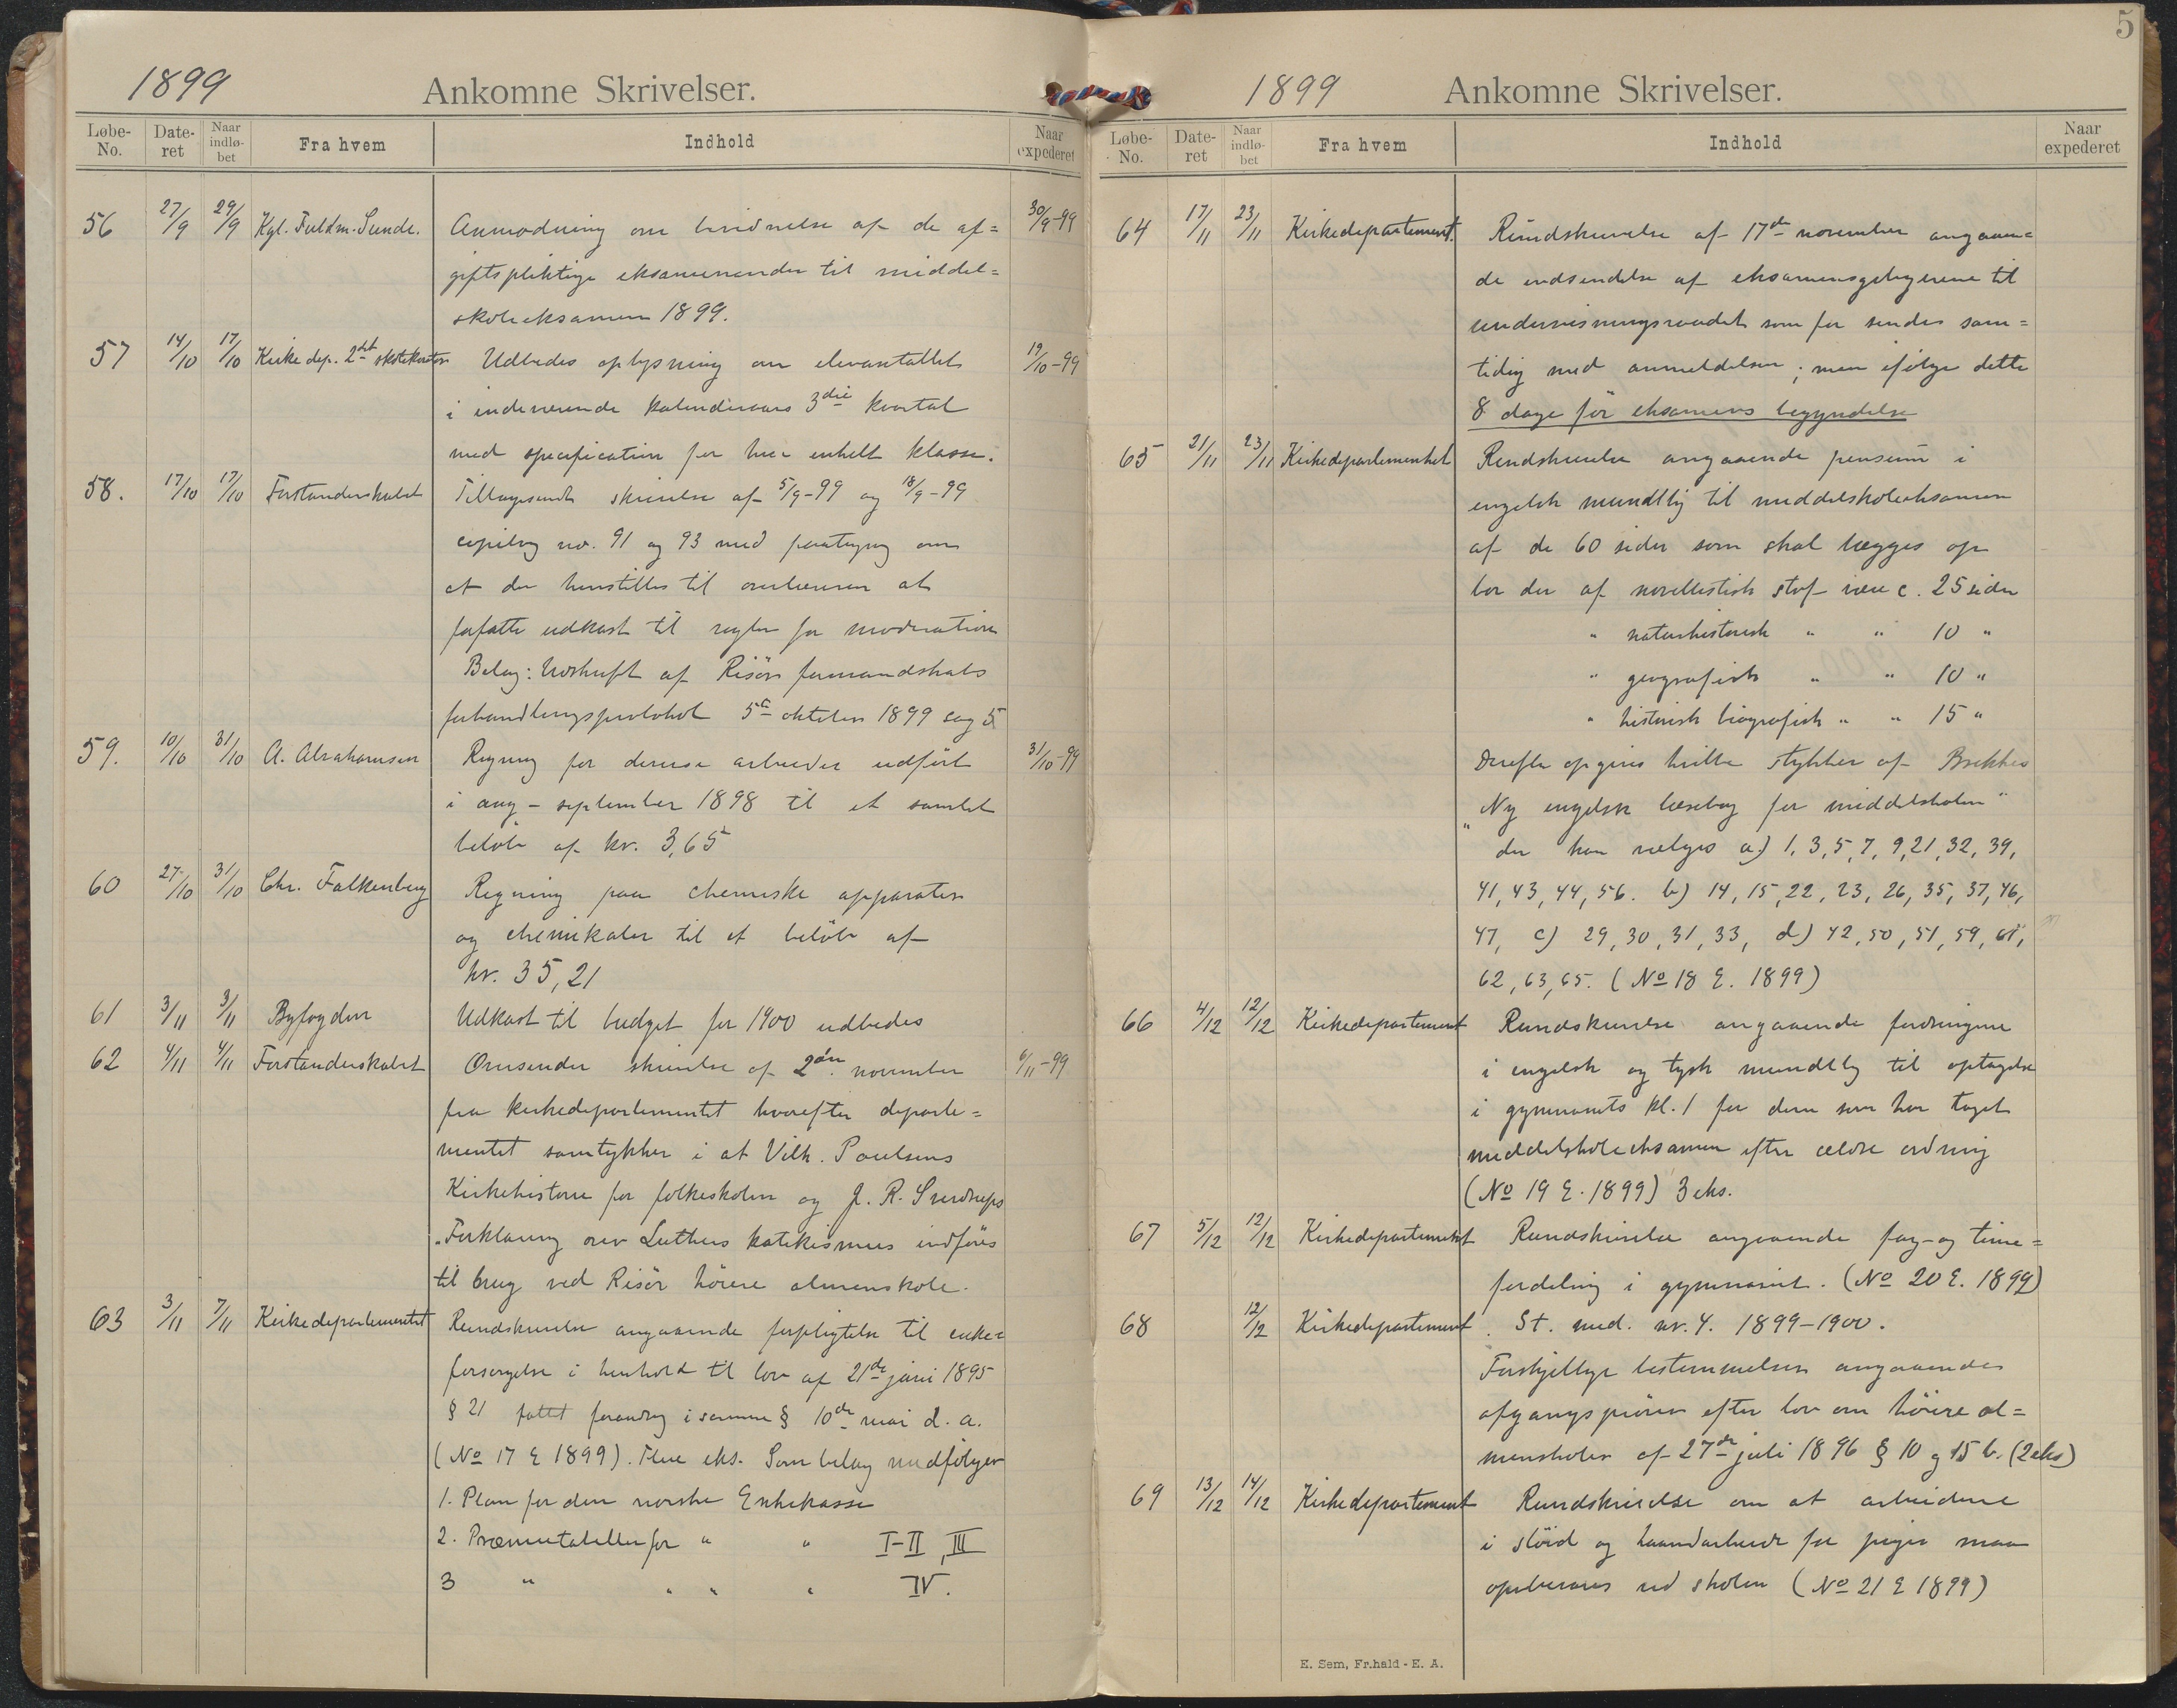 1899 Ankomne Skrivelser.
Løbe-No. Dateret Naar indløbet Fra hvem Indhold Naar expederet
56 27/9 29/9 Kgl. Fuldm. Sunde. Anmodning om bevidnelse af de af= 30/9-99
giftspliktige eksaminander til middel=
skoleeksamen 1899.
57 14/10 17/10 Kirkedep. 2det skolekontor Udbedes oplysning om elevantallet 19/10-99
i indeværende kalenderaars 3die kvartal
med specification for hver enkelt klasse.
58. 17/10 17/10 Forstanderskabet Tilbagesendt skrivelse af 5/9-99 og 18/9-99
copibog no. 91 og 93 med paategng om
at der henstilles til overlæreren at
forfatte udkast til regler for moderation
Belag: Udskrift af Risörs formandskabs
forhandlingsprotokol 5te oktober 1899 sag 5
59. 10/10 31/10 A. Abrahamsen Regning for diverse arbeider udfört 31/10-99
i aug - september 1898 til et samlet
belöb af kr. 3,65
60 27/10 31/10 Chr. Falkenberg Regning paa chemiske apparater
og chemikaler til et belöb af
kr. 35,21
61 3/11 3/11 Byfogden Udkast til budget for 1900 udbedes
62 4/11 4/11 Forstanderskabet Oversender skrivelse af 2den november 6/11-99
fra kirkedepartementet hvorefter departe=
mentet samtykker i at Vilh. Poulsens
Kirkehistorie for folkeskolen og J. R. Sverdrups
"Forklaring over Luthers katekismus indföres
til brug ved Risör höiere almenskole.
63 3/11 7/11 Kirkedepartementet Rundskrivelse angaaende forpligtelse til enke=
forsørgelse i henhold til lov af 21de juni 1895
§ 21 jvfr forandrg i samme § 10de mai d. a.
(No 17 E 1899). Flere eks. Som belag medfölger
1. Plan for den norske Enkekasse
2. Præmietabeller for " " I-II, III
3 " " " " IV.
5
1899 Ankomne Skrivelser.
Løbe-No. Dateret Naar indløbet Fra hvem Indhold Naar expederet
64 17/11 23/11 Kirkedepartement. Rundskrivelse af 17de november angaaen=
de indsendelse af eksamensgebyrerne til
undervisningsraadet som för sendes sam=
tidig med anmeldelsen; men ifölge dette
8 dage för eksamens begyndelse
65 21/11 23/11 Kirkedepartementet Rundskrivelse angaaende pensum i
engelsk mundtlig til middelskoleeksamen
af de 60 sider som skal lægges op
bør der af novellistisk stof være c. 25 sider
" naturhistorisk " " 10 "
" geografisk " " 10 "
" historisk biografisk " " 15 "
Derefter opgives hvilke stykker af Brekkes
"Ny engelsk læsebog for middelskolen"
der kan vælges a) 1, 3, 5, 7, 9, 21, 32, 39,
41, 43, 44, 56. b) 14, 15, 22, 23, 26, 35, 37, 46,
47, c) 29, 30, 31, 33, d) 42, 50, 51, 59, 61,
62, 63, 65. (No 18 E. 1899)
66 4/12 12/12 Kirkedepartement Rundskrivelse angaaende fordringerne
i engelsk og tysk mundtlig til optagelse
i gymnasiets kl. 1 for dem som har taget
middelskoleeksamen efter ældre ordning
(No 19 E. 1899) 3 eks.
67 5/12 12/12 Kirkedepartementet Rundskrivelse angaaende fag- og time=
fordeling i gymnasiet. (No 20 E. 1899)
68 12/12 Kirkedepartement. St. med. nr. 4. 1899-1900.
Forskjellige bestemmelser angaaende
afgangspröver efter lov om höiere al=
menskoler af 27de juli 1896 § 10 og 15 b. (2 eks)
69 13/12 14/12 Kirkedepartement Rundskrivelse om at arbeiderne
i slöid og haandarbeide for piger maa
opbevares ved skolen (No 21 E 1899)
E. Sem, Fr.hald - E. A.